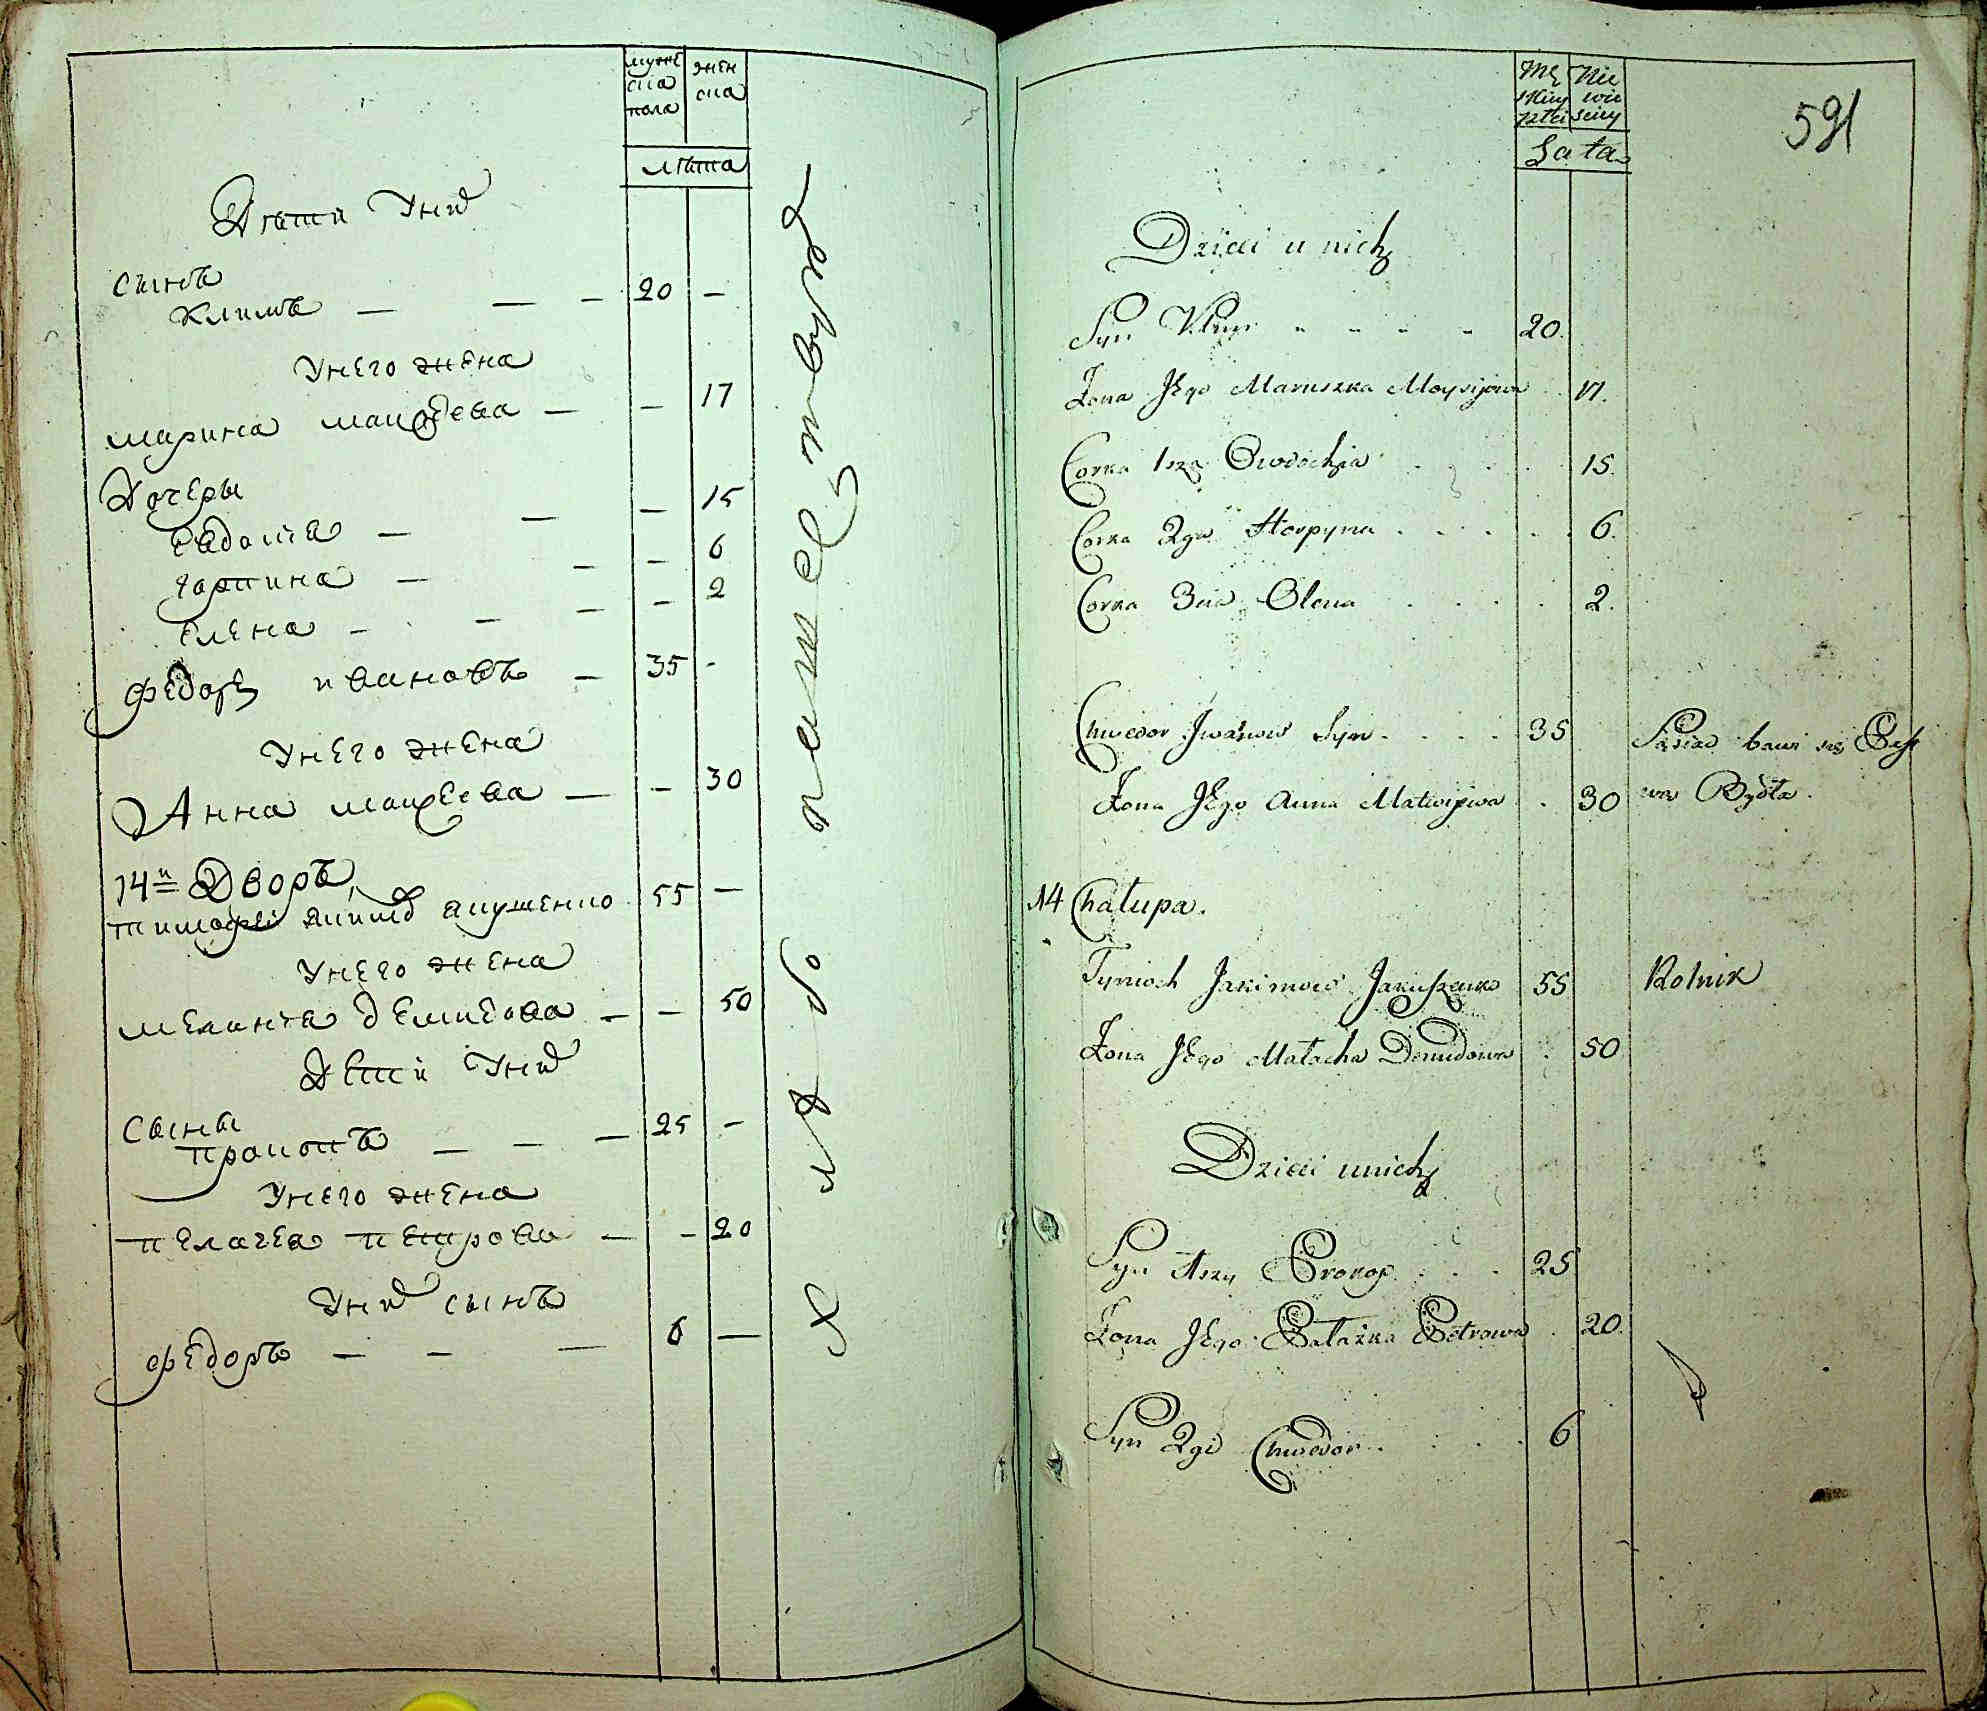 мужс
ска
пола
жен
ска
лѣта
Дѣти Уних
сынъ
Климъ — — — 20 —
Унего жена
марина моисѣева — — 17
Дочеры
Евдокія — — — 15
горпина — — — 6
Елена — — — — 2
федоръ ивановъ — 35 -
Унего жена
Анна матвеева — — 30
14й Дворъ
тимофей якимов якушенко 55 —
Унего жена
мелания демидова — — 50
Дети Уних
Сыны
прокопъ — — — 25 —
Унего жена
пелагея петрова — — 20
Уних сынъ
федоръ — — — 6 —
хлебопашествуют
Mę
skiey
płci
Nie
wie
sciey
Lata
591
Dzieci u nich
Syn Klim 20.
Żona Jego Maruszka Moysijowa 17.
Corka 1sza Owdochia 15.
Corka 2ga Horpyna 6.
Corka 3cia Olena 2.
Chwedor Jwanow Syn 35
Żona Jego Anna Matwijewa 30
bawi się
Bydła.
14 Chałupa.
Tymoch Jakimow Jakuszenko 55 Rolnik
Żona Jego Małacha Demidowa 50
Dzieci unich
Syn 1szy Prokop 25
Żona Jego Pałażka Petrowa 20.
Syn 2gi Chwedor 6